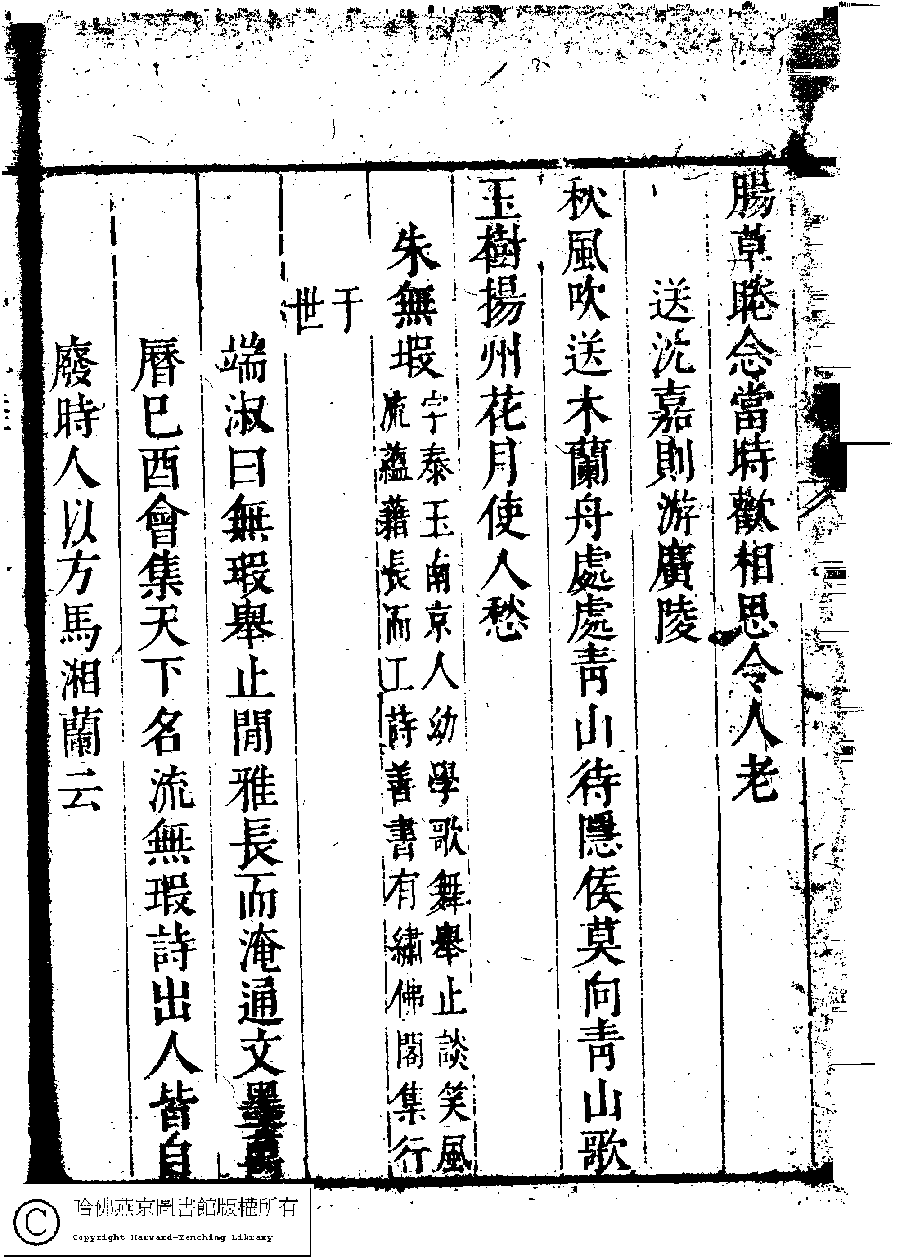 腸草睠念當時歡相思令人老
送沈嘉則游廣陵
秋風吹送木蘭舟處處青山待隱侯莫向青山歌
玉樹揚州花月使人愁
朱無瑕
字泰玉南京人幼學歌舞舉止談笑風
流蘊藉長而工詩善書有繡佛閣集行
于
世
端淑曰無瑕舉止閒雅長而淹通文墨萬
曆巳酉會集天下名流無瑕詩出人皆自
廢時人以方馬湘蘭云
哈佛燕京圖書館版權所有
Copyright Harvard-Yenching Library